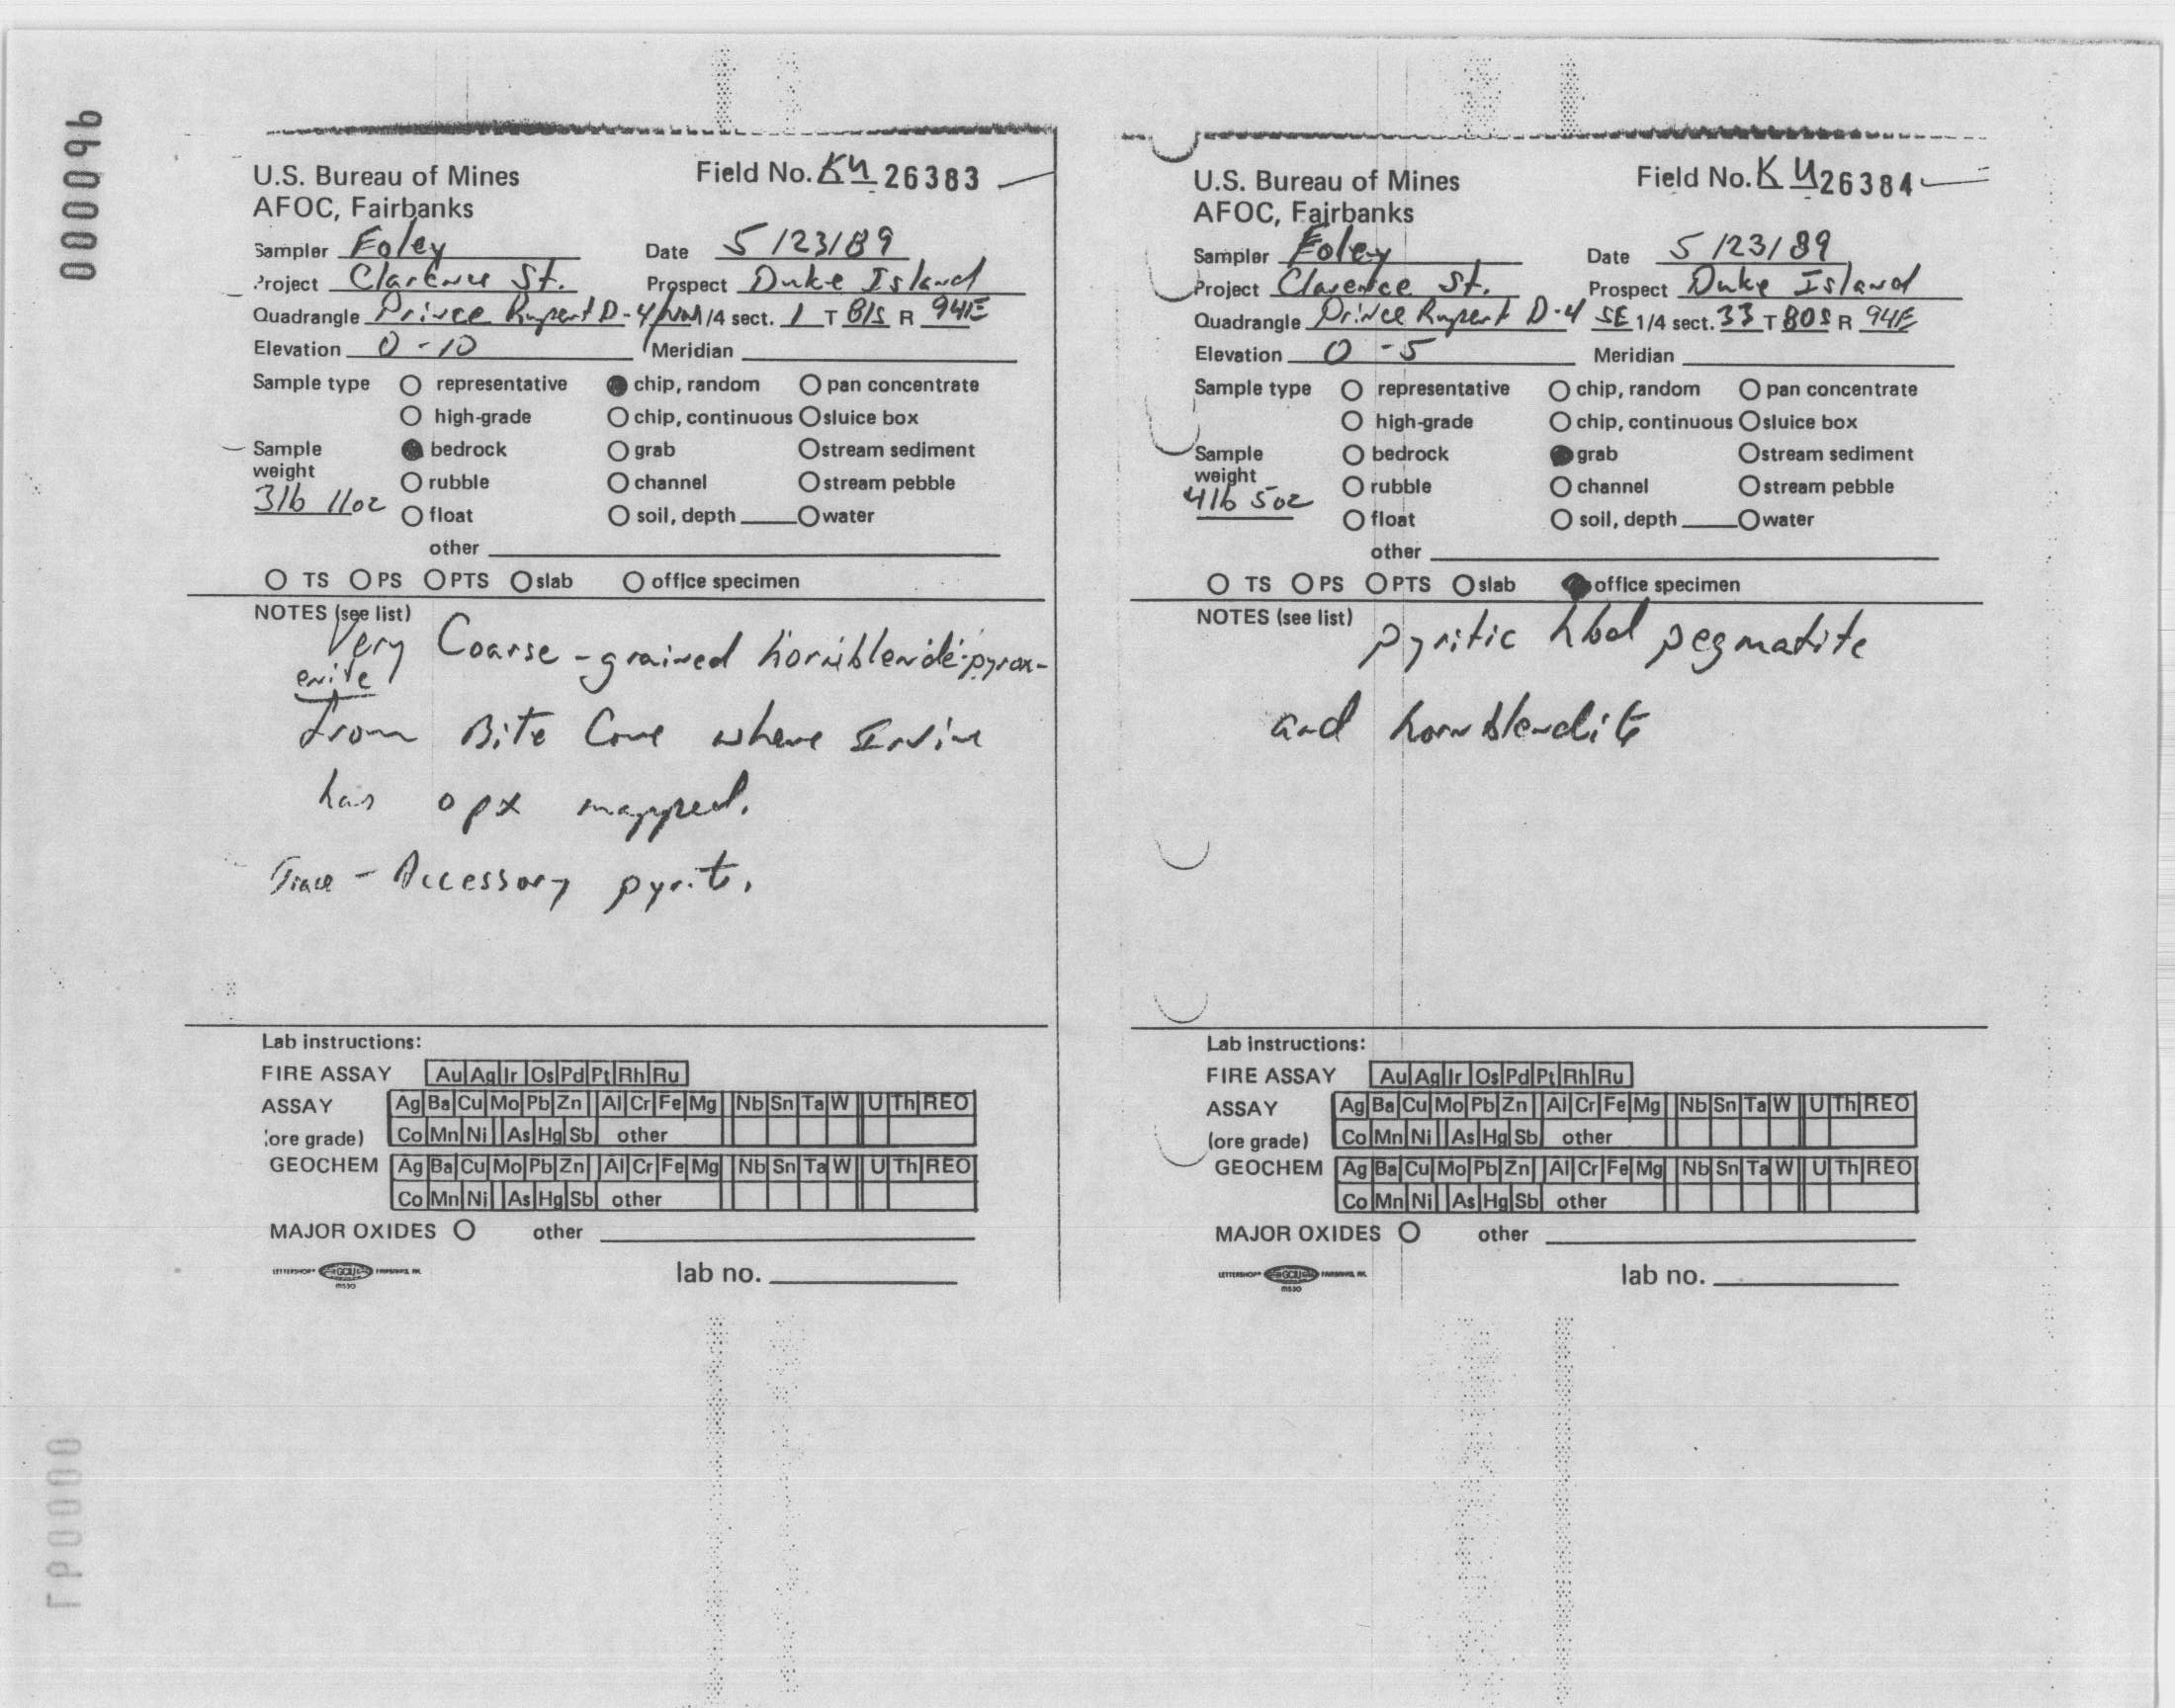 000096
U.S. Bureau of Mines
Field No. KU 26383
AFOC, Fairbanks
Sampler Foley Date 5/23/89
Project Clarence St. Prospect Duke Island
Quadrangle Prince Rupert D-4 NW 1/4 sect. 1 T 81S R 94E
Elevation 0-10 Meridian
Sample type representative chip, random pan concentrate
high-grade chip, continuous sluice box
Sample bedrock grab stream sediment
weight
3lb 11oz rubble channel stream pebble
float soil, depth water
other
TS PS PTS slab office specimen
NOTES (see list)
Very Coarse-grained hornblende-pyrox-
enite
from Bite Cove where Irvine
has opx mapped.
Trace - Accessory pyrite.
Lab instructions:
FIRE ASSAY Au Ag Ir Os Pd Pt Rh Ru
ASSAY Ag Ba Cu Mo Pb Zn Al Cr Fe Mg Nb Sn Ta W U Th REO
(ore grade) Co Mn Ni As Hg Sb other
GEOCHEM Ag Ba Cu Mo Pb Zn Al Cr Fe Mg Nb Sn Ta W U Th REO
Co Mn Ni As Hg Sb other
MAJOR OXIDES other
lab no.
U.S. Bureau of Mines
Field No. KU 26384
AFOC, Fairbanks
Sampler Foley Date 5/23/89
Project Clarence St. Prospect Duke Island
Quadrangle Prince Rupert D-4 SE 1/4 sect. 33 T 80S R 94E
Elevation 0-5 Meridian
Sample type representative chip, random pan concentrate
high-grade chip, continuous sluice box
Sample bedrock grab stream sediment
weight
4lb 5oz rubble channel stream pebble
float soil, depth water
other
TS PS PTS slab office specimen
NOTES (see list)
pyritic hbd pegmatite
and hornblendite
Lab instructions:
FIRE ASSAY Au Ag Ir Os Pd Pt Rh Ru
ASSAY Ag Ba Cu Mo Pb Zn Al Cr Fe Mg Nb Sn Ta W U Th REO
(ore grade) Co Mn Ni As Hg Sb other
GEOCHEM Ag Ba Cu Mo Pb Zn Al Cr Fe Mg Nb Sn Ta W U Th REO
Co Mn Ni As Hg Sb other
MAJOR OXIDES other
lab no.